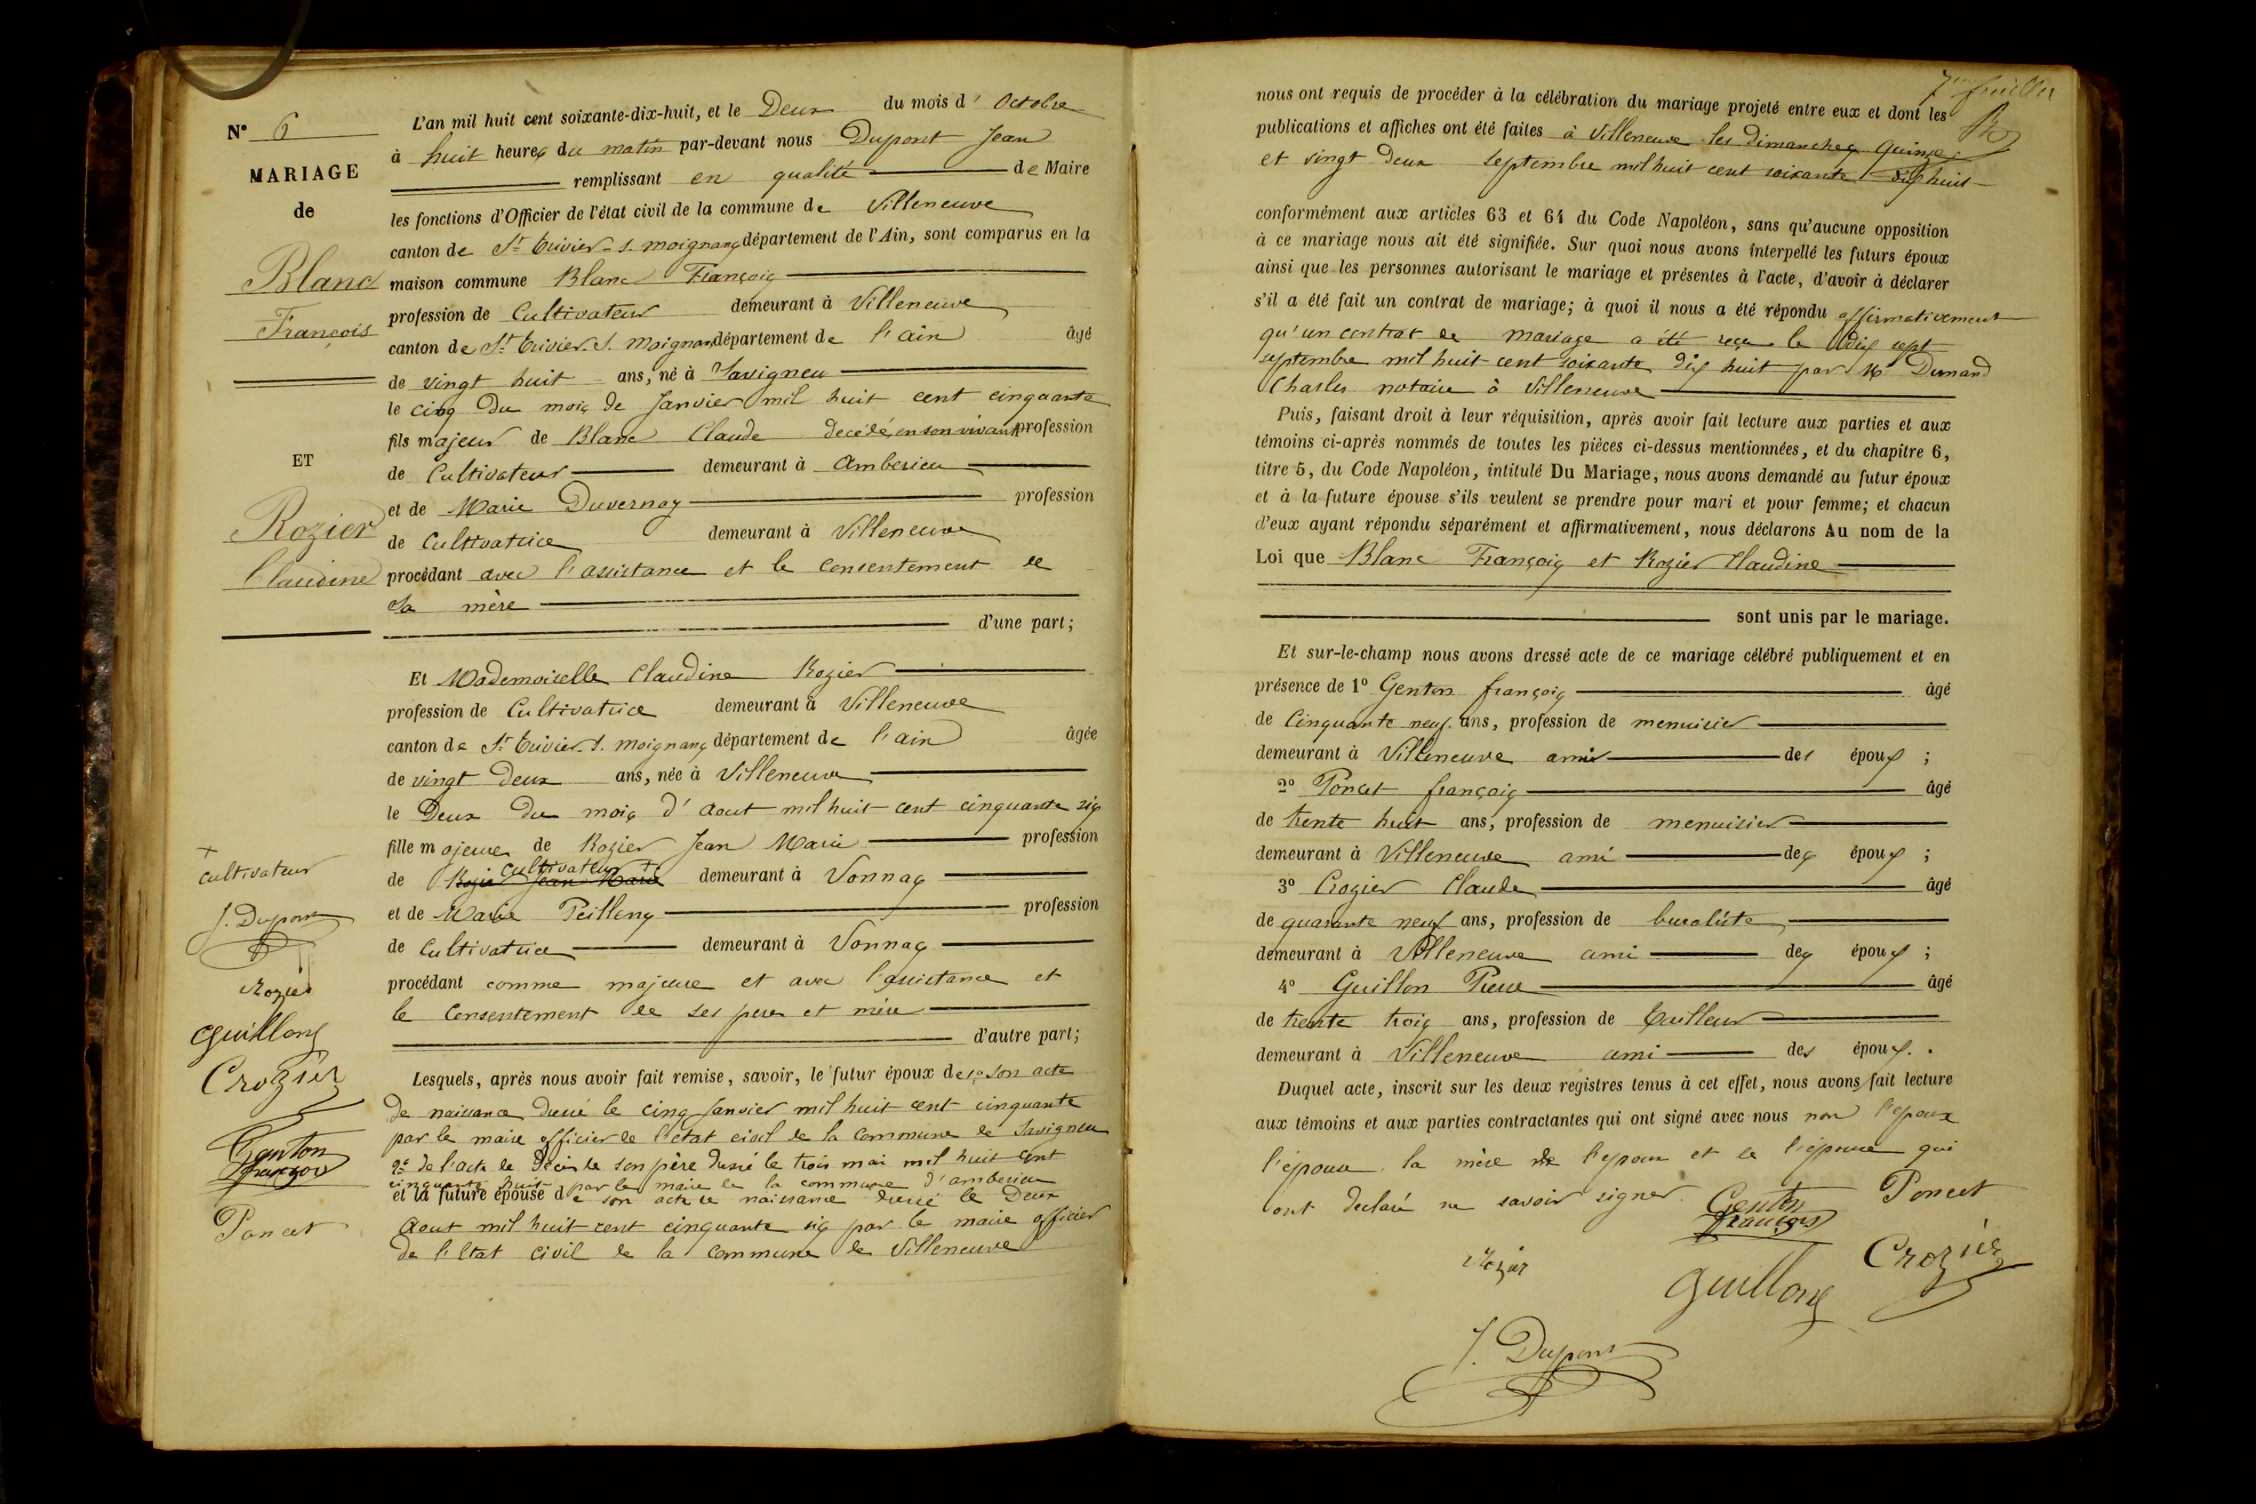 N° 6
MARIAGE
de
Blanc
François
ET
Rozier
Claudine
L'an mil huit cent soixante-dix-huit, et le Deux du mois d' Octobre
à huit heures du matin par-devant nous Dupont Jean
remplissant en qualité de Maire
les fonctions d'Officier de l'état civil de la commune de Villeneuve
canton de St Trivier-s. moignans département de l'Ain, sont comparus en la
maison commune Blanc François
profession de Cultivateur demeurant à Villeneuve
canton de St Trivier. S. Moignans département de l'ain âgé
de vingt huit ans, né à Savigneu
le cinq Du mois de Janvier mil huit cent cinquante
fils majeur de Blanc Claude decédé, en son vivant profession
de Cultivateur demeurant à Amberieu
et de Marie Duvernay profession
de Cultivatrice demeurant à Villeneuve
procédant avec l'assistance et le consentement de
Sa mère
d'une part;
Et Mademoiselle Claudine Rozier
profession de Cultivatrice demeurant à Villeneuve
canton de St Trivier. S. moignans département de l'ain âgée
de vingt Deux ans, née à Villeneuve
le Deux Du mois d' Aout mil huit cent cinquante six
fille majeure de Rozier Jean Marie profession
cultivateur +
de Rozier Jean Marie demeurant à Vonnas
et de Marie profession
de Cultivatrice demeurant à Vonnas
procédant comme majeure et avec l'assistance et
le Consentement de ses pere et mère
d'autre part;
Lesquels, après nous avoir fait remise, savoir, le futur époux de 1° Son acte
de naissance dressé le cinq Janvier mil huit cent cinquante
par le maire officier de l'état civil de la Commune de Savigneu
2° de l'acte de Décès de son père dressé le trois mai mil huit cent
cinquante huit par le maire de la commune d'amberieu
et la future épouse de son acte de naissance dressé le Deux
Aout mil huit cent cinquante six par le maire officier
de l'Etat civil de la Commune de Villeneuve
+
cultivateur
J. Dupont
Rozier
Guillon
Crozier
Genton
françois
Poncet
7me feuillet
nous ont requis de procéder à la célébration du mariage projeté entre eux et dont les
publications et affiches ont été faites à Villeneuve les dimanches Quinze
et vingt Deux Septembre mil huit cent soixante dix huit
conformément aux articles 63 et 64 du Code Napoléon, sans qu'aucune opposition
à ce mariage nous ait été signifiée. Sur quoi nous avons interpellé les futurs époux
ainsi que les personnes autorisant le mariage et présentes à l'acte, d'avoir à déclarer
s'il a été fait un contrat de mariage; à quoi il nous a été répondu affirmativement
qu'un contrat de mariage a été reçu le dix sept
septembre mil huit cent soixante dix huit par Me Dumand
Charles notaire à Villeneuve
Puis, faisant droit à leur réquisition, après avoir fait lecture aux parties et aux
témoins ci-après nommés de toutes les pièces ci-dessus mentionnées, et du chapitre 6,
titre 5, du Code Napoléon, intitulé Du Mariage, nous avons demandé au futur époux
et à la future épouse s'ils veulent se prendre pour mari et pour femme; et chacun
d'eux ayant répondu séparément et affirmativement, nous déclarons Au nom de la
Loi que Blanc François et Rozier Claudine
sont unis par le mariage.
Et sur-le-champ nous avons dressé acte de ce mariage célébré publiquement et en
présence de 1° Genton françois âgé
de Cinquante neuf ans, profession de menuisier
demeurant à Villeneuve ami des époux ;
2° Poncet françois âgé
de trente huit ans, profession de menuisier
demeurant à Villeneuve ami des époux ;
3° Crozier Claude âgé
de quarante neuf ans, profession de buraliste
demeurant à Villeneuve ami des époux ;
4° Guillon Pierre âgé
de trente trois ans, profession de tailleur
demeurant à Villeneuve ami des époux.
Duquel acte, inscrit sur les deux registres tenus à cet effet, nous avons fait lecture
aux témoins et aux parties contractantes qui ont signé avec nous non l'epoux
l'épouse, la mère de l'epoux et de l'épouse qui
ont declaré ne savoir signer.
Genton
françois
Poncet
Rozier
Guillon
Crozier
J. Dupont